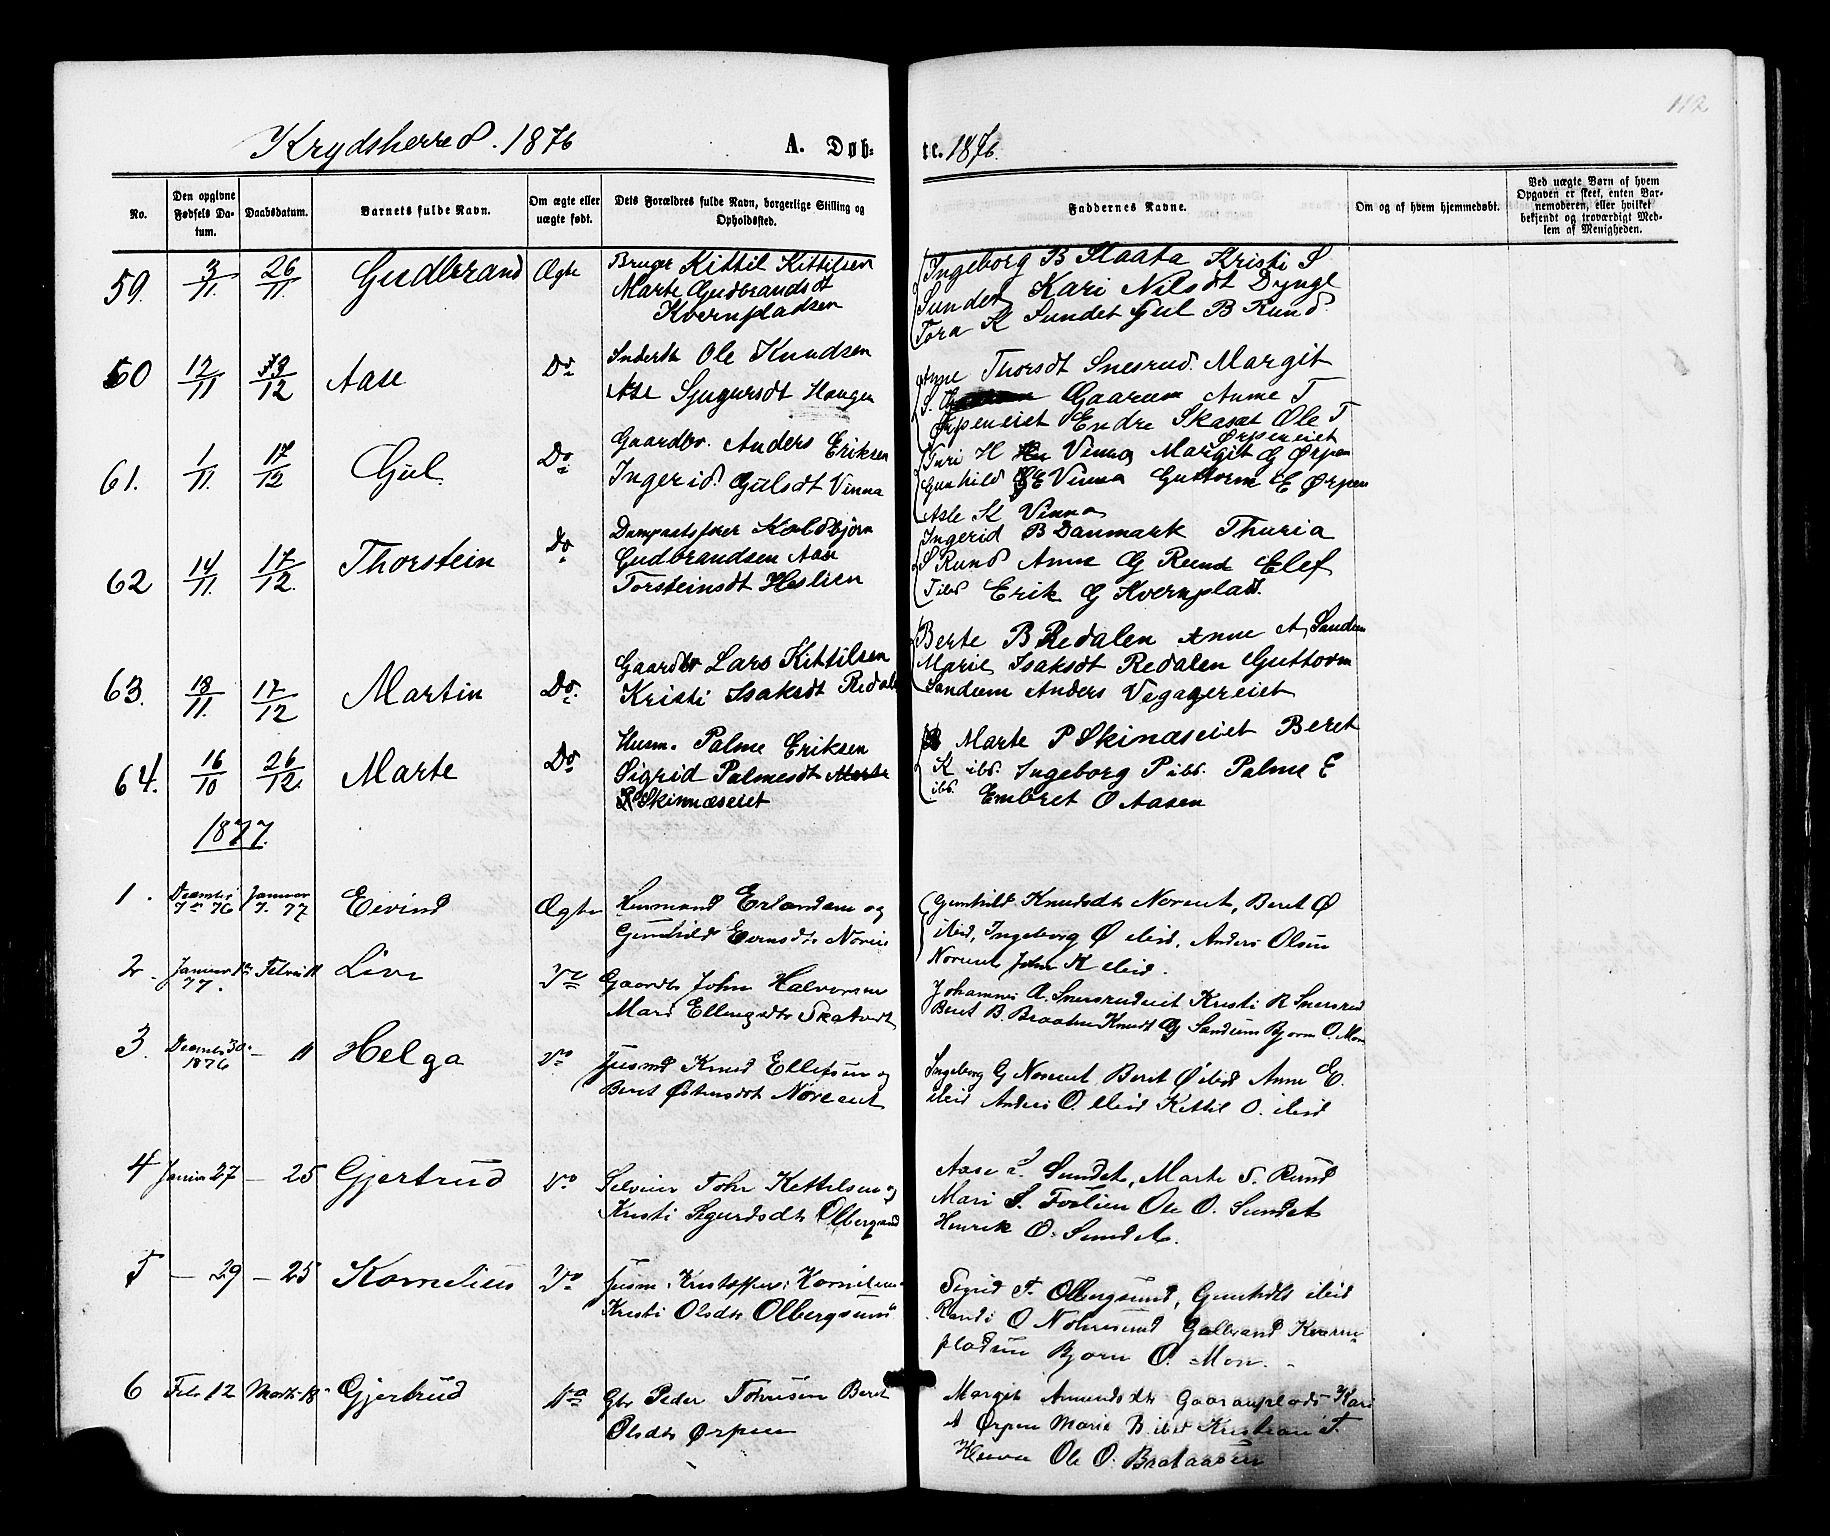 112
Krydsherred. 1876 A. Døb- te. 1876.
No.
Den opgivne Fødsels Da- tum.
Daabsdatum.
Barnets fulde Navn.
Om ægte eller uægte født.
Dets Forældres fulde Navn, borgerlige Stilling og Opholdssted.
Faddernes Navne.
Om og af hvem hjemmedøbt.
Ved uægte Børn af hvem
Opgaven er skeet, enten Bar-
nemoderen, eller hvilket
bekjendt og troværdigt Med-
lem af Menigheden.
59. 3/11. 26/11. Gudbrand Ægte
Bruger Kittil Kittilsen
Marte Gudbrandsdt
Kvernpladsen
Ingeborg B Staata Kristi S
Sundet Kari Nilsdt Dyngl
Tora K Sundet Gul B Rund
60 12/11 /12 Aase Do
Ole Knudsen
Ase Sjugursdt Haugen
Anne Thorsdt Snesrud Margit
S. Gaarum Anne T
Ørpeneiet Endre Skasat Ole T
Ørpeneiet
61. 1/11. 17/12 Gul. Do
Gaardbr. Anders Eriksen
Ingerid Gulsdt Vinna
Turi H Vinna Margit G Ørpen
Gunhild E Vinna Guttorm E Ørpen
Asle K Vinna
62 14/11. 17/12. Thorstein Do
Kolbjørn
Gudbrandsen Aase
Torsteinsdt Heslien
Ingerid B Danmark Thuria
S Rund Anne G Rund Elef
Tibs Erik G Kvernplads.
63. 18/11. 17/12 Martin Do.
Gaardbr Lars Kittilsen
Kristi Isaksdt Redalen
Berte B Redalen Anne A Sandum
Marie Isaksdt Redalen Guttorm
Sandum Anders Vegagereiet
64. 16/10 26/12. Marte Do
Husm. Palme Eriksen
Sigrid Palmesdt Marte
Skinnæseiet
Marte P Skinæseiet Beret
K ibd. Ingeborg P ibd. Palme E
ibd. Embret O Aasen
1877.
1. December 7de 76 Januar 7. 77 Eivind Ægte
Husmand Erlandsen og
Gunhild Evensdtr
Gunhild Knudsdtr Noreiet, Beret Ø
ibid, Ingeborg Ø ibid, Anders Olsen
Noreiet John K ibid.
2. Januar 77. Febru 11 Live Do
Gaardb John Halvorsen
Mari Ellingsdtr
Johannes A. Snersrudeiet Kristi R Snersrud
Beret B. Braaten Knudt G Sandum Bjørn O. Moen
3. December 30. 1876 — 11 Helga Do
Husmd Knud Ellefsen og
Beret Østensdt Noreeiet
Ingeborg G Noreiet Beret Ø ibid Anne E.
ibid Anders O. ibid Kittil O. ibid
4 Januar 27 — 25 Gjertrud Do
Selveier Tohr Kettelsen og
Kristi Segurdsdtr Olbergsund
Aase Sundet, Marte S. Rund
Mari S. Foslien Ole O. Sundet
Henrik O. Sundet.
5 — 29 — 25 Kornelius Do
Husm. Kristoffer Kornelius
Kristi Olsdtr Olbergsund
Sigrid T. Olbergsund, Gunhild ibid
Randi O Nohresund Gulbrand Kvarn-
pladsen Bjørn O. Moen.
6 Febr 12 Marts 18 Gjertrud Do
Gbr Peder Tohresen Beret
Olsdtr Ørpen
Margit Amundsdtr Gaaranplads Kari
A Ørpen Marie B. ibid Kristian T.
Ole O. Brataasen